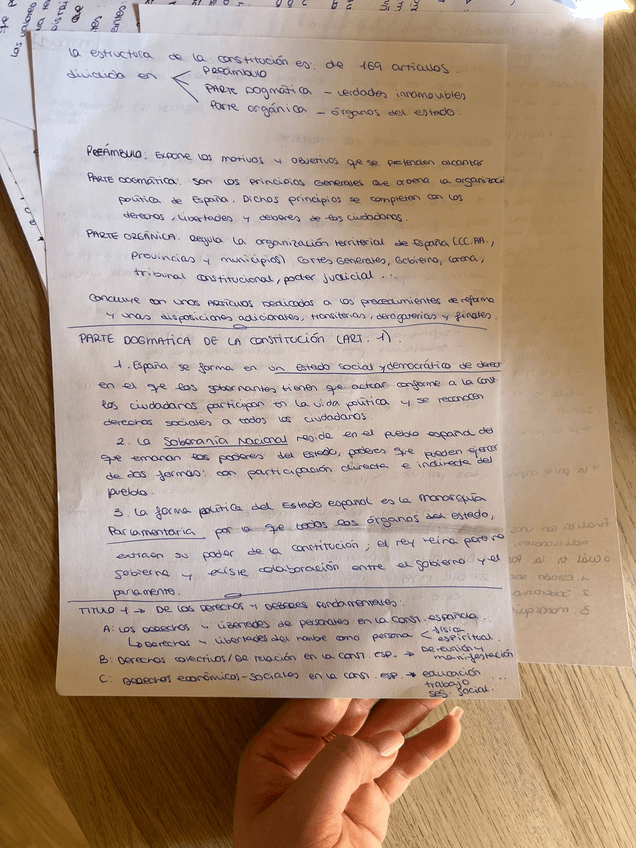 La estructura de la constitución es: de 169 artículos
dividida en
PREÁMBULO
PARTE DOGMÁTICA - verdades innamovibles
PARTE orgánica - órganos del estado.
PREÁMBULO: Expone los motivos y objetivos que se pretenden alcanzar
PARTE DOGMÁTICA: son los principios generales que ordena la organizaci
política de España. Dichos principios se completan con los
derechos, libertades y deberes de los ciudadanos.
PARTE ORGÁNICA: Regula la organización territorial de España (CC.AA.,
provincias y municipios) Cortes Generales, Gobierno, Corona,
tribunal constitucional, poder judicial ...
Concluye con unos artículos dedicados a los procedimientos de reforma
y unas disposiciones adicionales, transitorias, derogatorias y finales.
PARTE DOGMATICA DE LA CONSTITUCIÓN (ART. 1)
1. España se forma en un estado social y democrático de derec
en el que los gobernantes tienen que actuar conforme a la const
los ciudadanos participan en la vida política y se reconocen
derechos sociales a todos los ciudadanos.
2. La Soberanía Nacional reside en el pueblo español del
que emanan los poderes del Estado, poderes que pueden ejercer
de dos formas: con participación directe e indirecta del
pueblo.
3. La forma política del Estado español es la Monarquía
Parlamentaria por la que todos los órganos del estado,
extraen su poder de la constitución, el rey reina pero no
gobierna y existe colaboración entre el gobierno y el
parlamento.
TITULO 1 → DE los derechos y DEBERES fundamentales:
A: Los DERECHOS y libertades de personales en la const. española.
↳ Derechos y libertades del hombre como persona
física
espiritual.
B: Derechos colectivos/De relación en la const. esp. → De reunión y
manifestación
C: DERECHOS económicos-sociales en la const. esp. → educación ...
trabajo
seg. social.